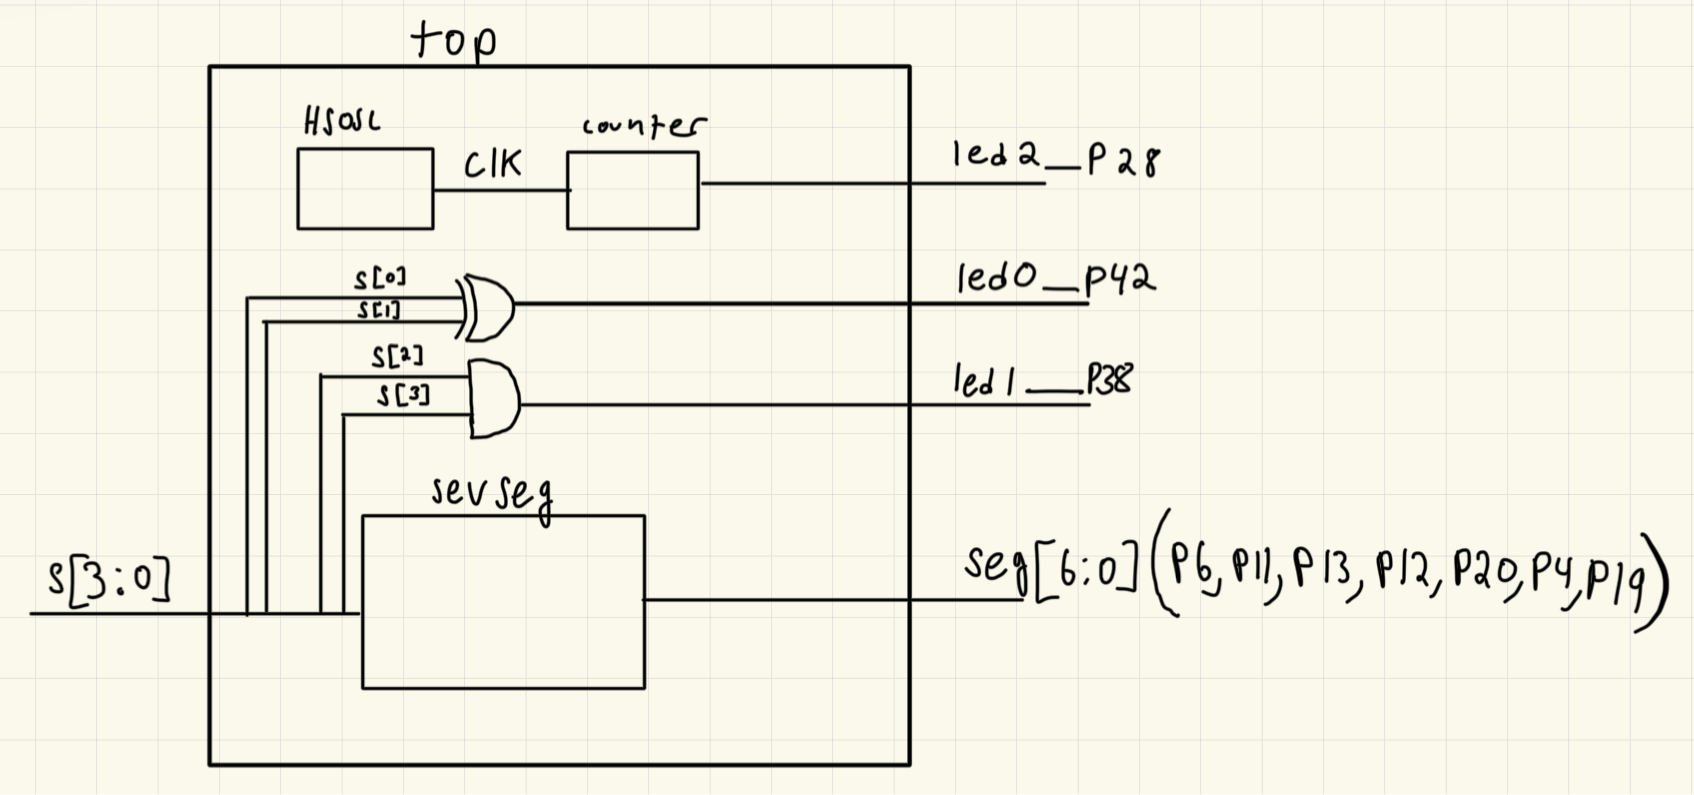 top
HSOSC
clk
counter
led2_P28
s[0]
s[1]
led0_P42
s[2]
s[3]
led1_P38
sevseg
s[3:0]
seg[6:0](P6,P11,P13,P12,P20,P4,P19)